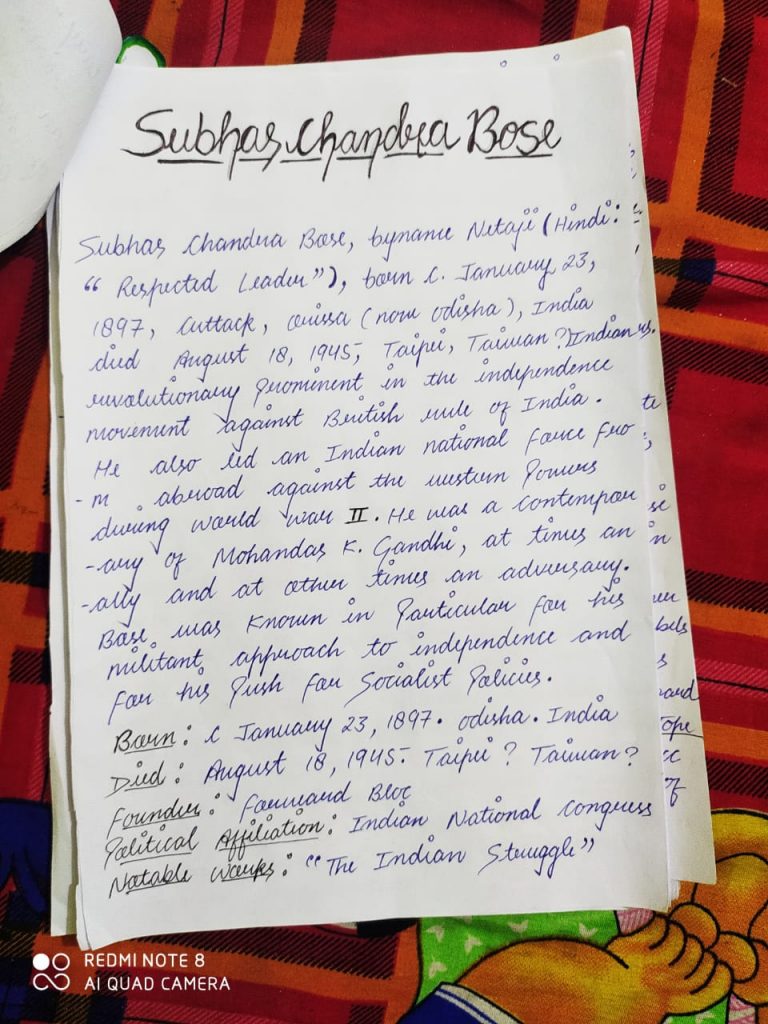 Subhas Chandra Bose
Subhas Chandra Bose, byname Netaji (Hindi:
"Respected Leader"), born c. January 23,
1897, Cuttack, Orissa (now odisha), India
died August 18, 1945, Taipei, Taiwan? Indian
revolutionary prominent in the independence
movement against British rule of India.
He also led an Indian national force fro
-m abroad against the western Powers
during world war II. He was a contempor
-ary of Mohandas K. Gandhi, at times an
-ally and at other times an adversary.
Bose was known in Particular for his
militant approach to independence and
for his Push for Socialist Policies.
Born: c January 23, 1897. odisha. India
Died: August 18, 1945. Taipei? Taiwan?
Founder: Forward Bloc
Political Affiliation: Indian National Congress
Notable Works: "The Indian Struggle"
Tope
of
REDMI NOTE 8
AI QUAD CAMERA